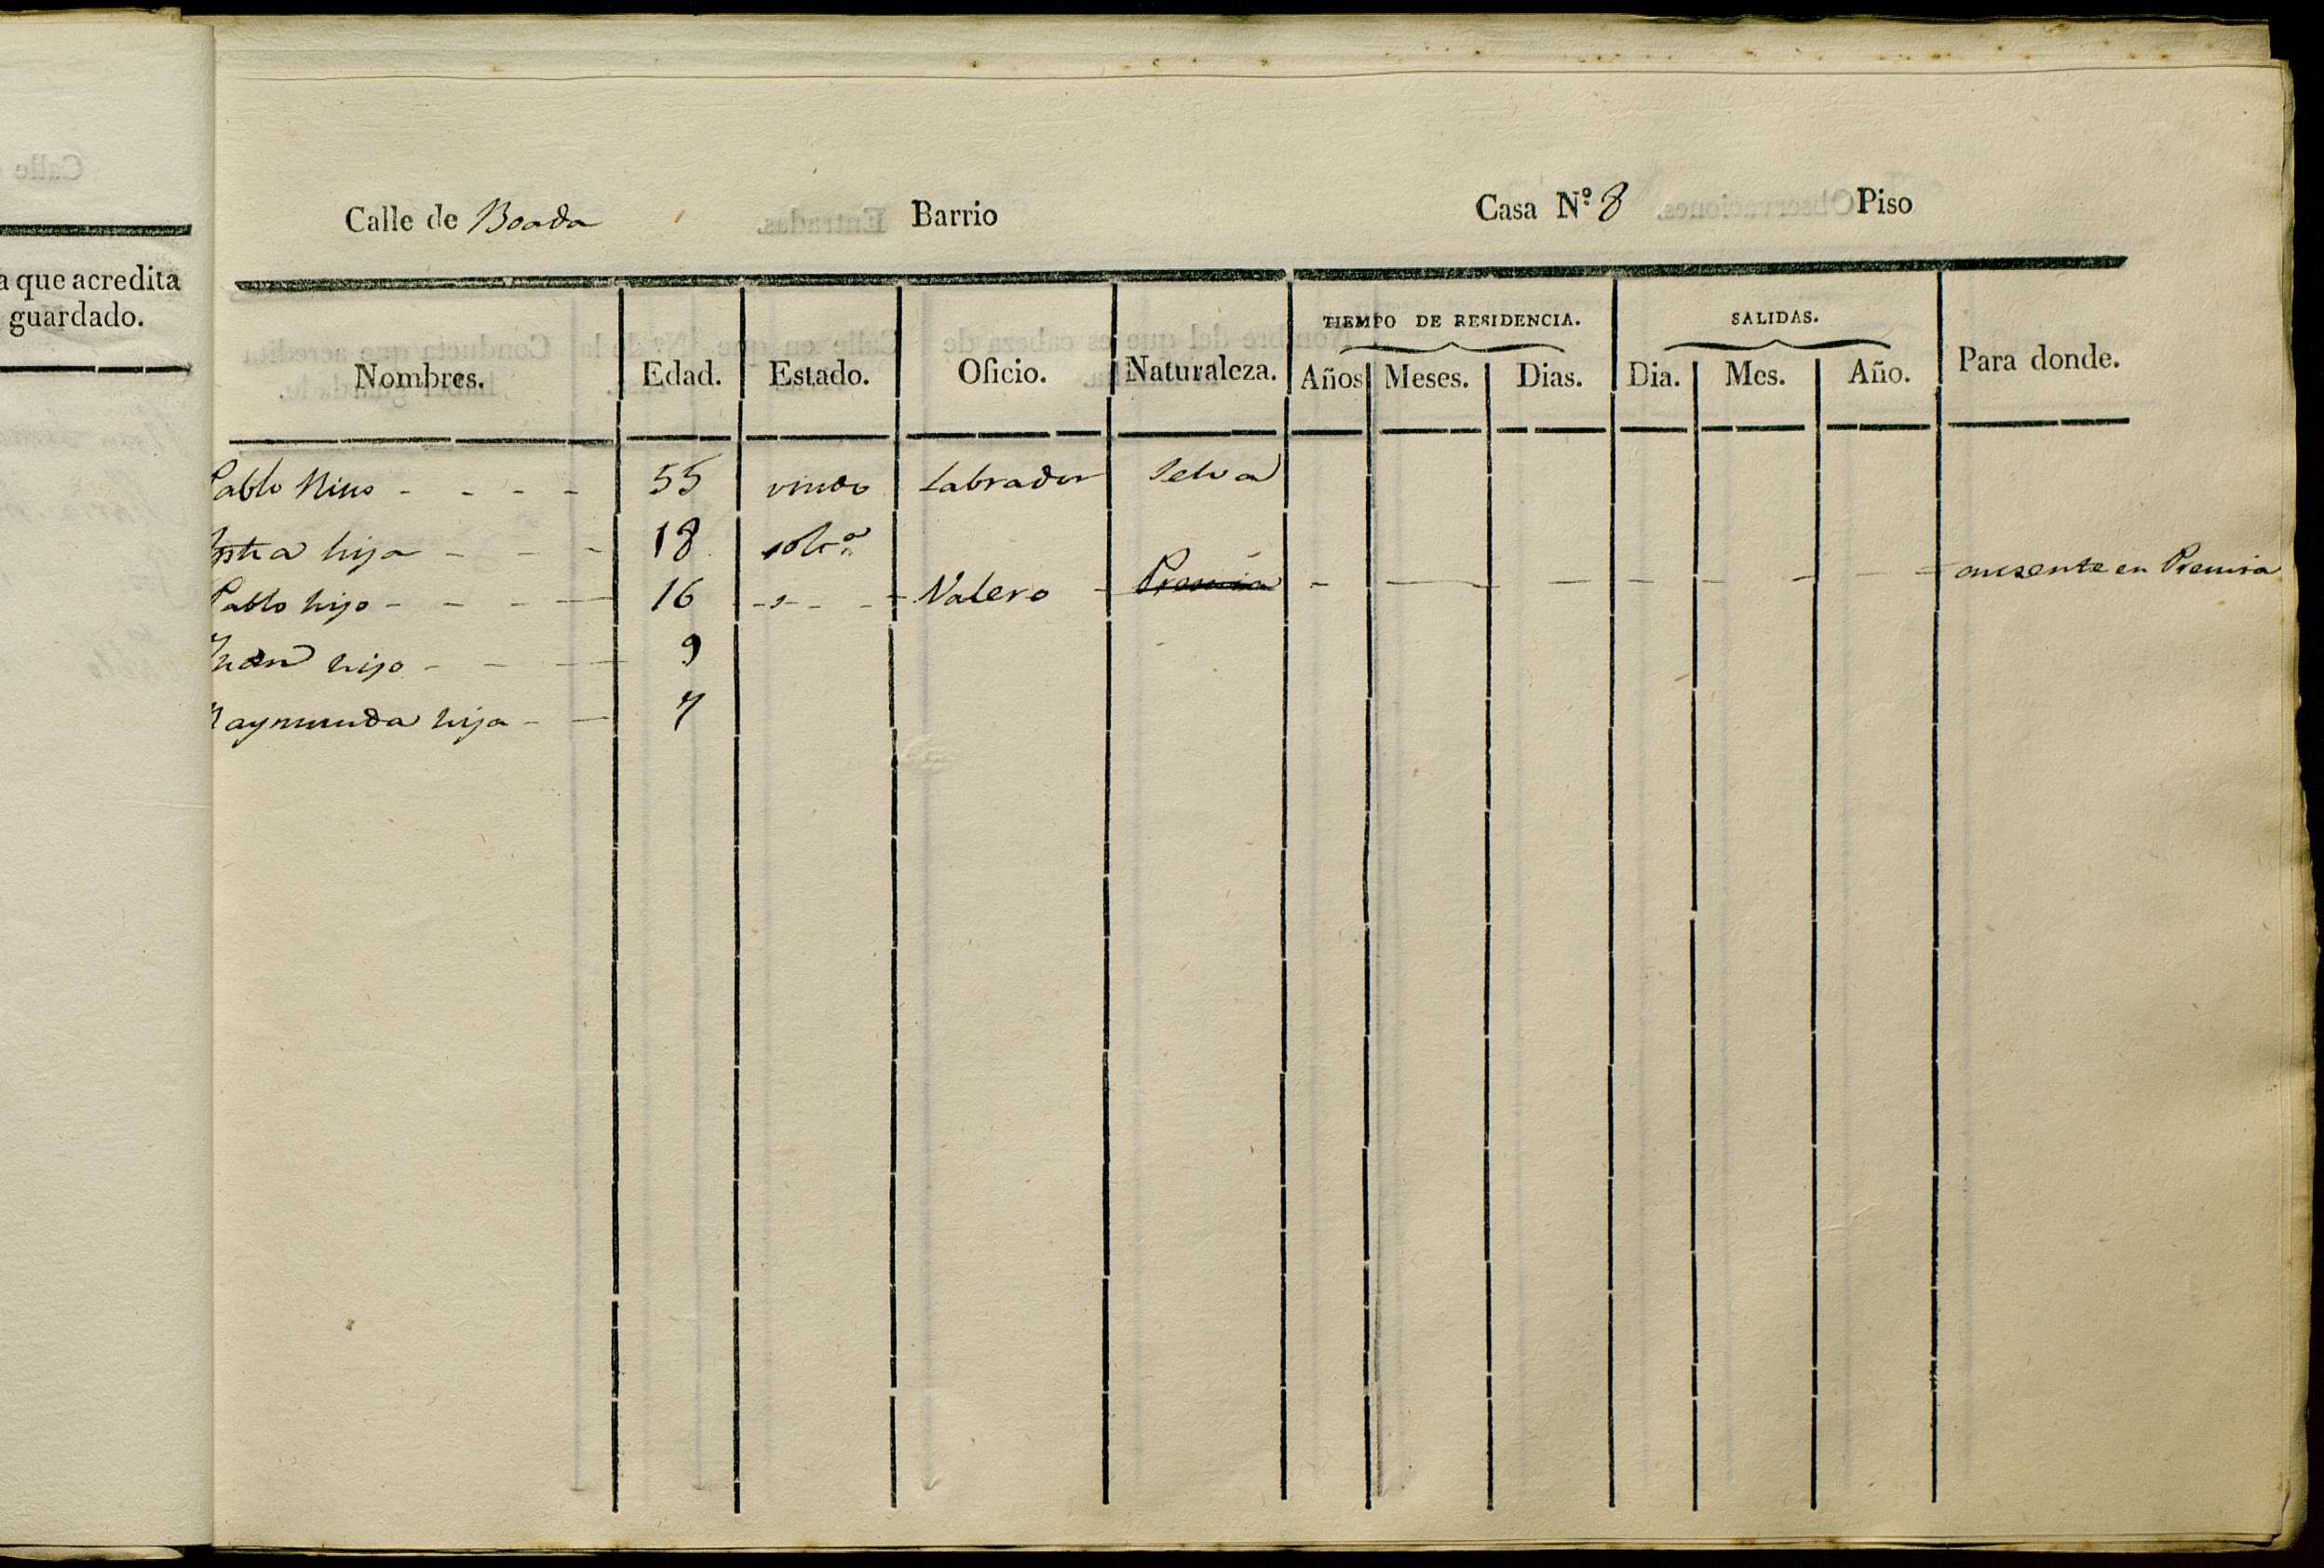 a que acredita
guardado.
Calle de Boada Barrio Casa N.º 8 Piso
TIEMPO DE RESIDENCIA. SALIDAS.
Nombres. Edad. Estado. Oficio. Naturaleza. Años Meses. Dias. Dia. Mes. Año. Para donde.
Pablo 55 viudo Labrador Selva
hija 18 solt.ª
Pablo hijo 16 Valero Premia ausente en Premia
Juan hijo 9
Raymunda hija 7